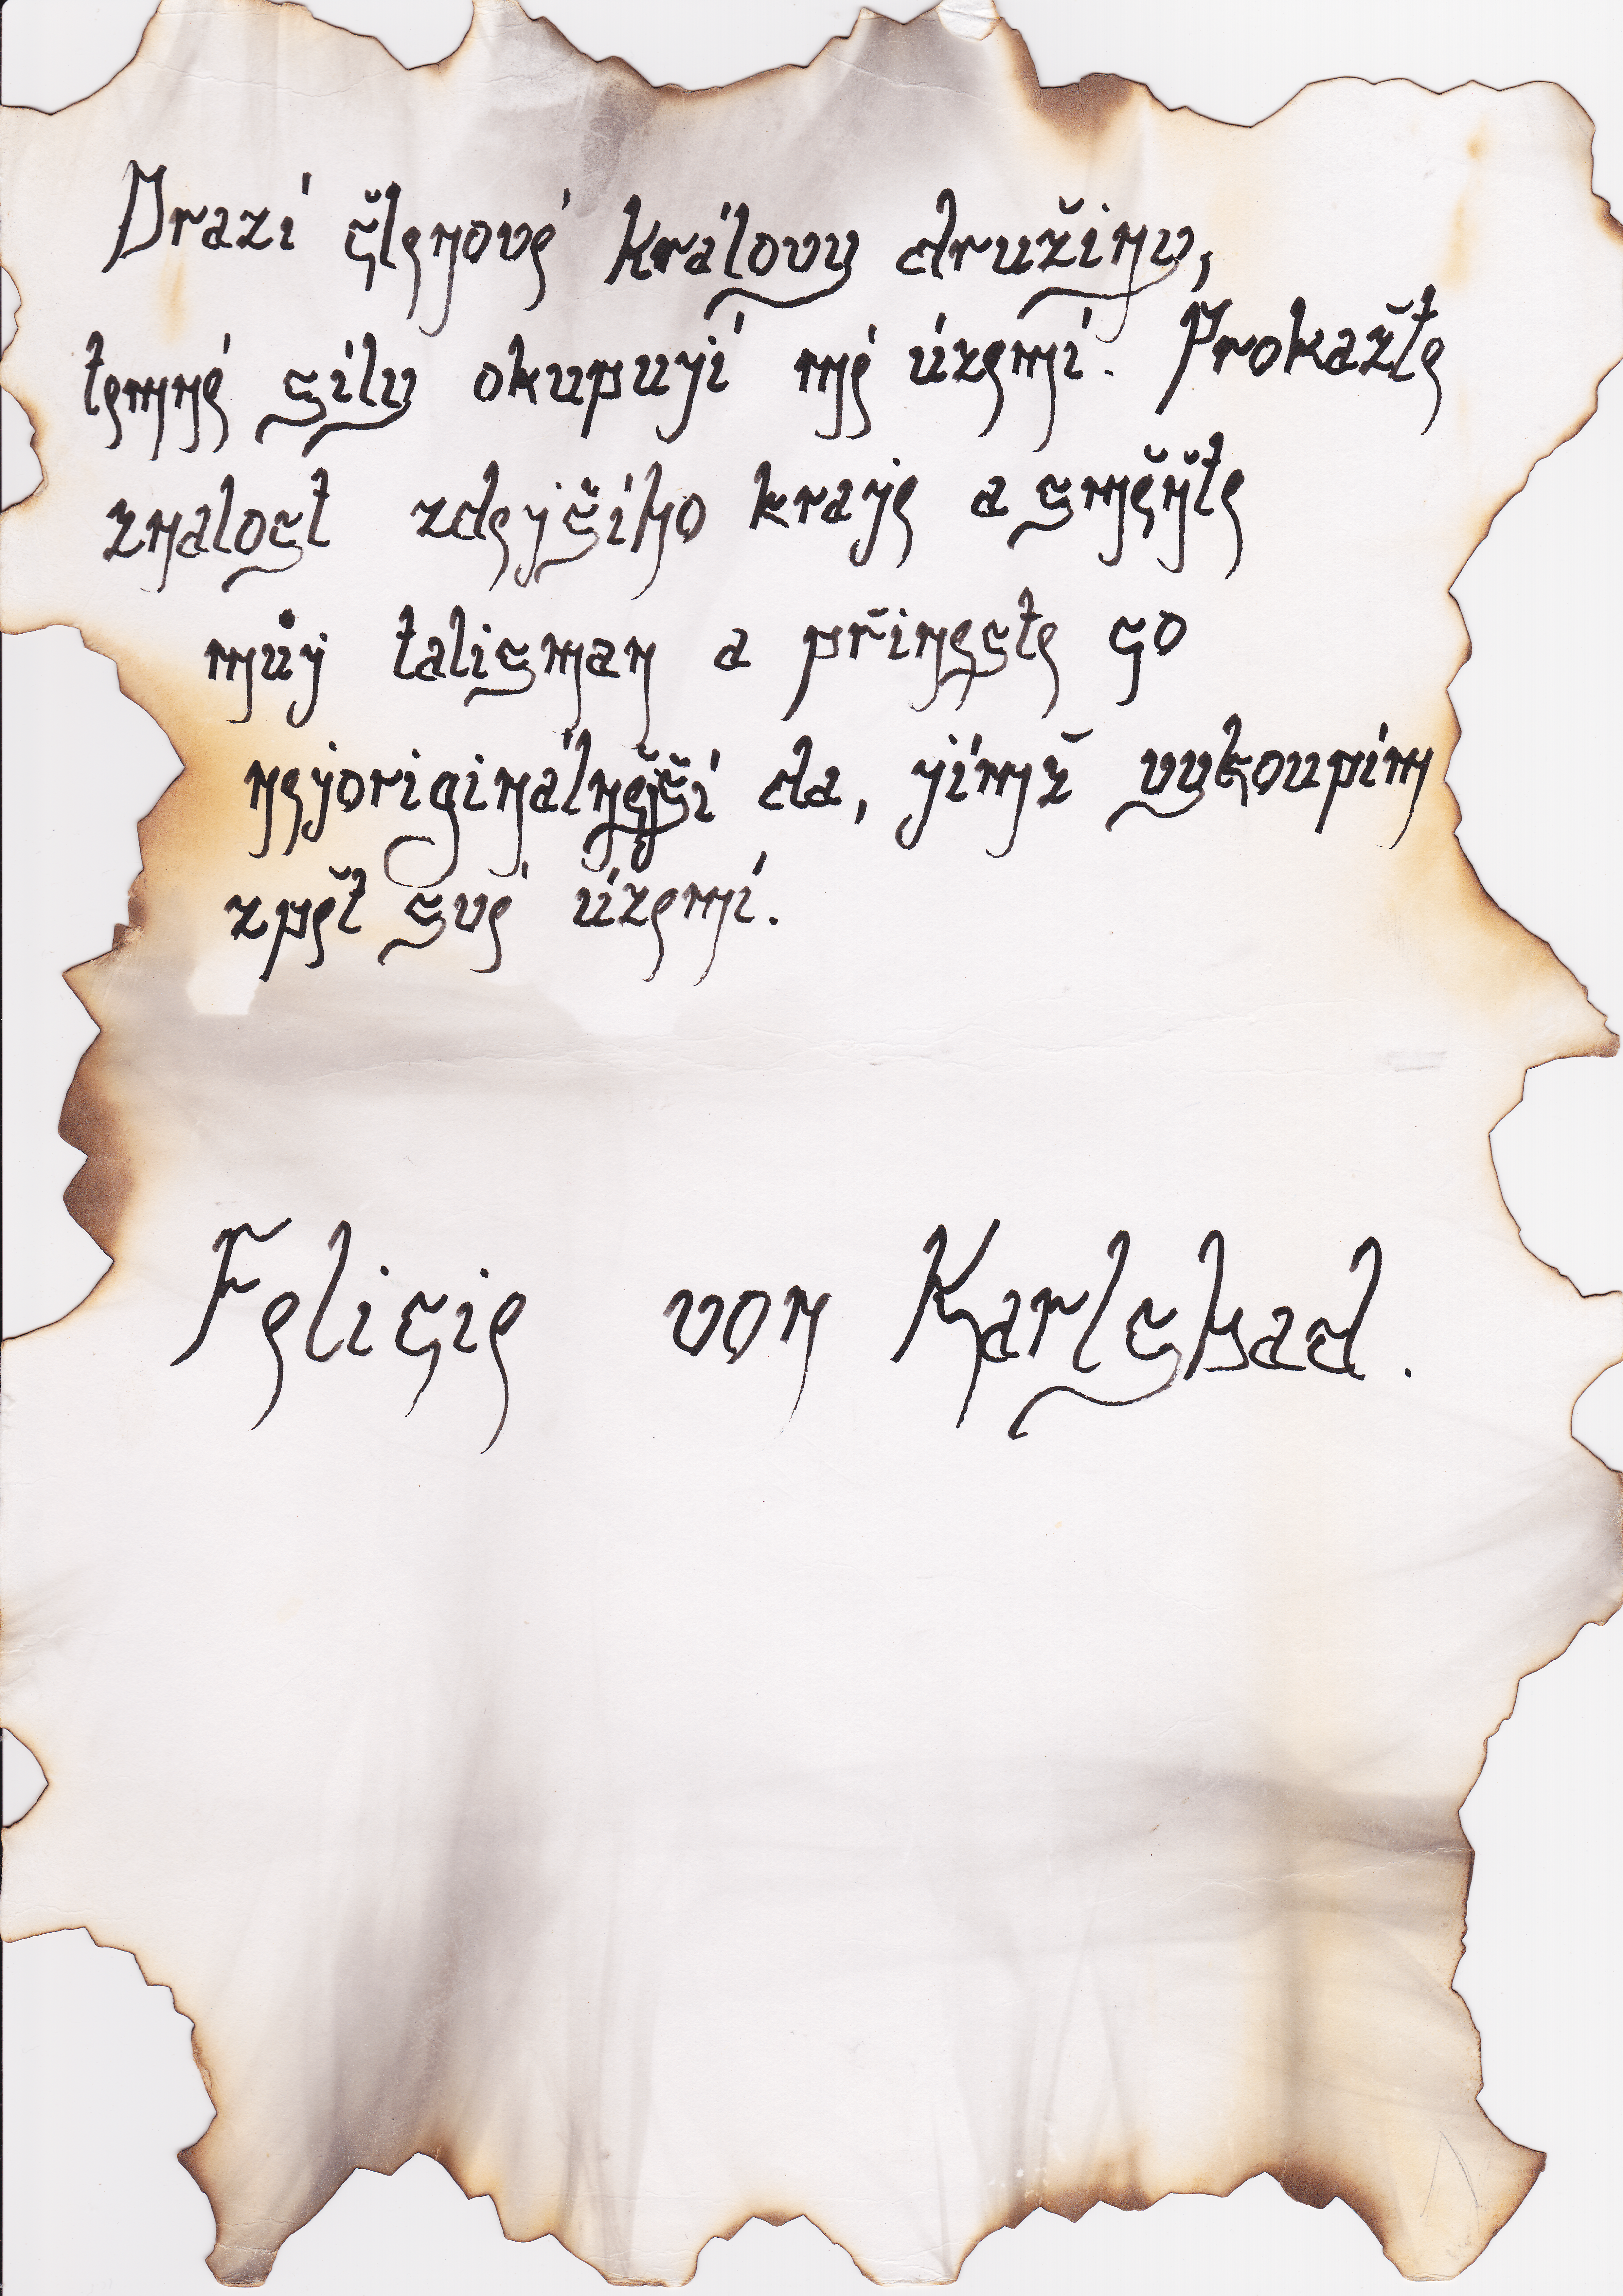 Drazí členové královy družiny,
temné síly okupují mé území. Prokažte
znalost zdejšího kraje a směňte
můj talisman a přineste co
nejoriginálnější da, jímž vykoupím
zpět své území.
Felicie von Karlsbad.